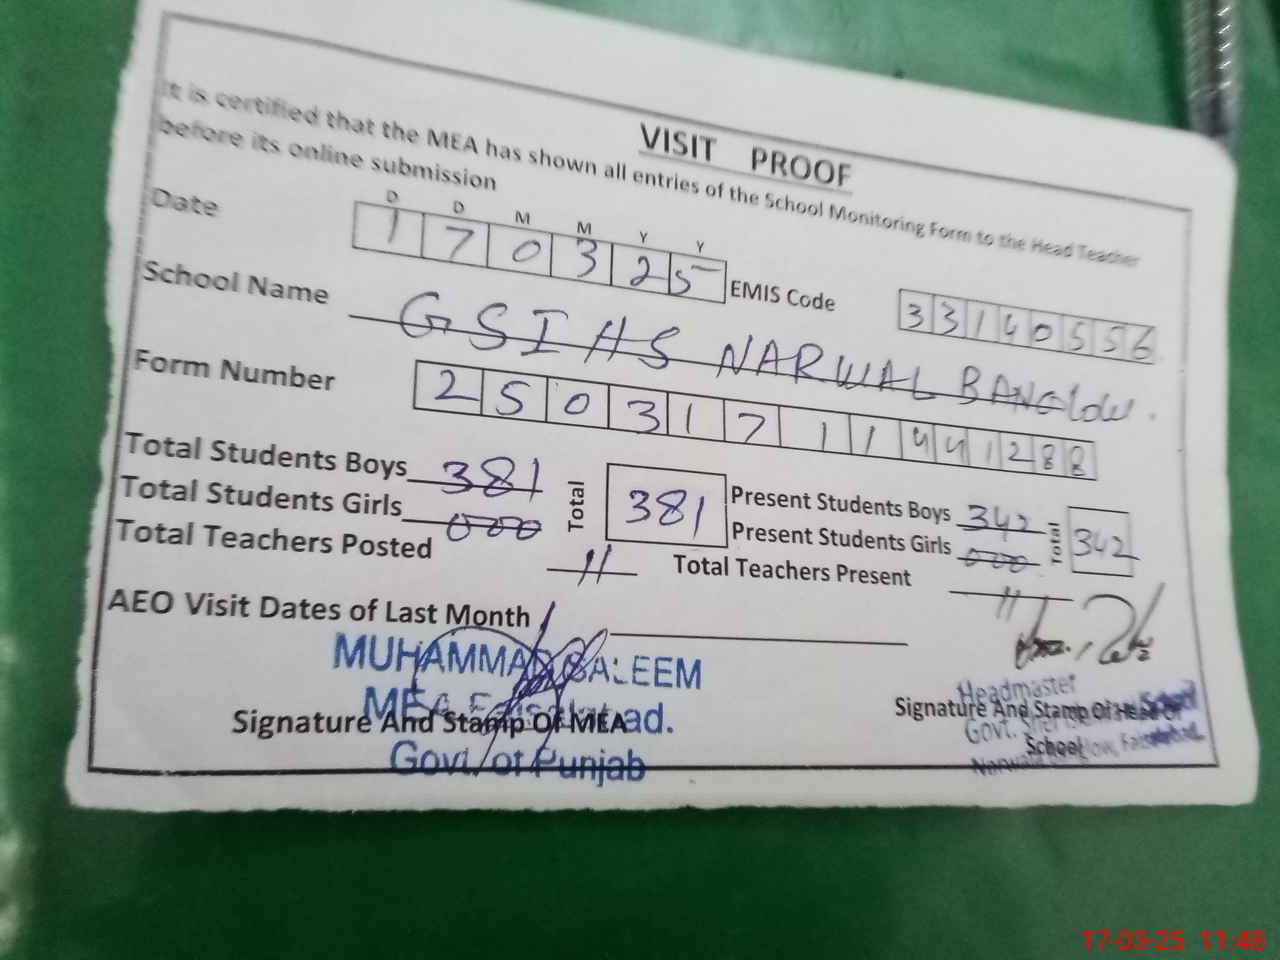 VISIT PROOF
It is certified that the MEA has shown all entries of the School Monitoring Form to the Head Teacher
before its online submission
D D M M Y Y
Date 1 7 0 3 2 5 EMIS Code 3 3 1 4 0 5 5 6
School Name GSIHS NARWAL BANGLOW.
Form Number 2 5 0 3 1 7 1 1 4 4 1 2 8 8
Total Students Boys 381 Total 381 Present Students Boys 342 Total 342
Total Students Girls 000 Present Students Girls 000
Total Teachers Posted 11 Total Teachers Present 11
AEO Visit Dates of Last Month
MUHAMMAD SALEEM
MEA Faisalabad.
Govt. of Punjab
Signature And Stamp Of MEA
Headmaster
Signature And Stamp Of Head Of
School
Govt.
17-03-25 11:48